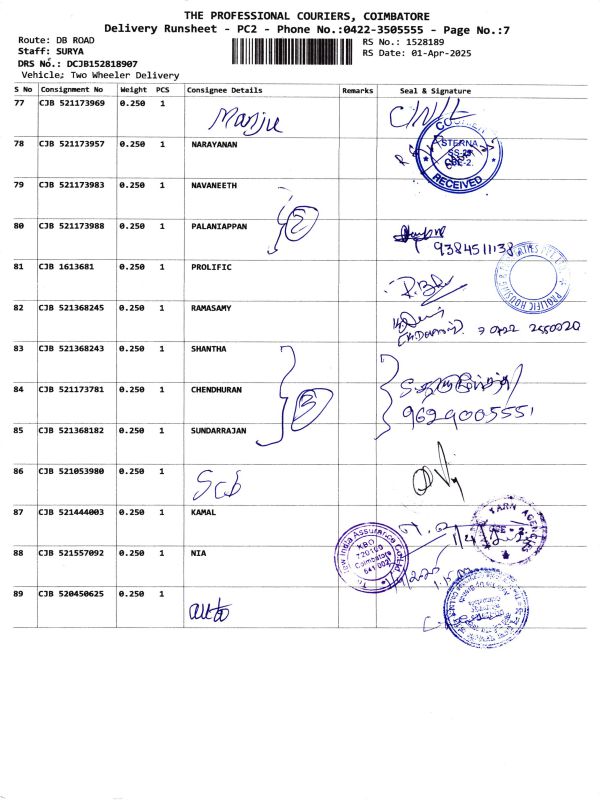 THE PROFESSIONAL COURIERS, COIMBATORE
Delivery Runsheet - PC2 - Phone No.:0422-3505555 - Page No.:7
Route: DB ROAD
Staff: SURYA
DRS No.: DCJB152818907
Vehicle: Two Wheeler Delivery
RS No.: 1528189
RS Date: 01-Apr-2025
S No Consignment No Weight PCS Consignee Details Remarks Seal & Signature
77 CJB 521173969 0.250 1 Manju
78 CJB 521173957 0.250 1 NARAYANAN
RECEIVED
79 CJB 521173983 0.250 1 NAVANEETH
2
80 CJB 521173988 0.250 1 PALANIAPPAN
9384511138
81 CJB 1613681 0.250 1 PROLIFIC
82 CJB 521368245 0.250 1 RAMASAMY
83 CJB 521368243 0.250 1 SHANTHA
84 CJB 521173781 0.250 1 CHENDHURAN
3
9629005551
85 CJB 521368182 0.250 1 SUNDARRAJAN
86 CJB 521053980 0.250 1 Scb
87 CJB 521444003 0.250 1 KAMAL
TARN AGENCIES
88 CJB 521557092 0.250 1 NIA
New India Assurance Co Ltd
KBO
720100
Coimbatore
641002
89 CJB 520450625 0.250 1 auto